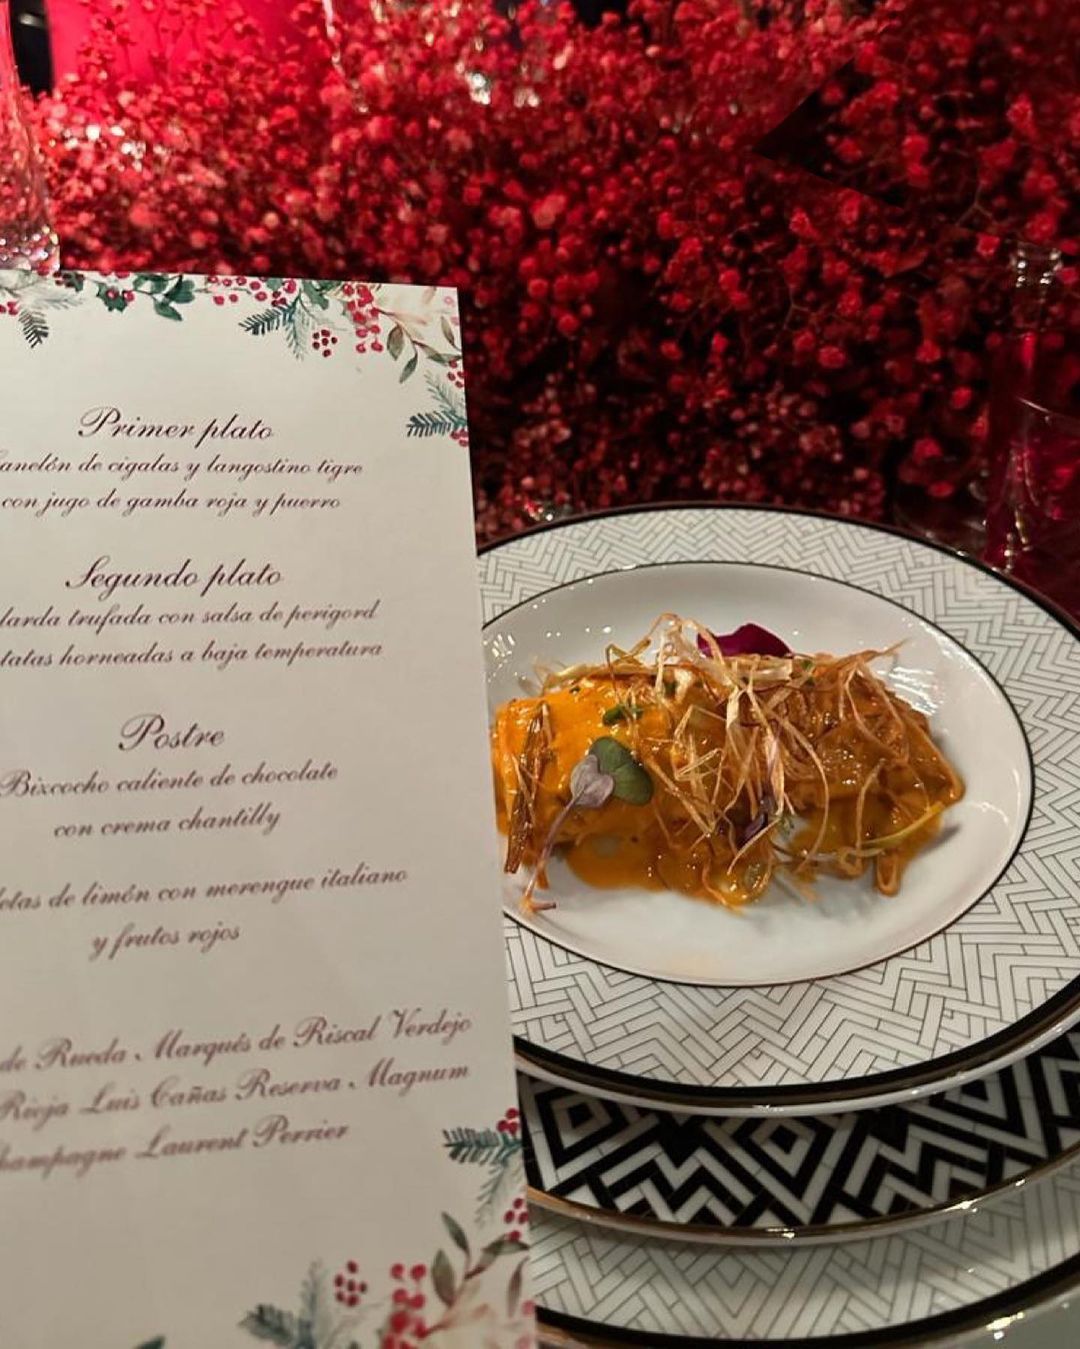 Primer plato
anelón de cigalas y langostino tigre
con jugo de gamba roja y puerro
Segundo plato
larda trufada con salsa de perigord
tatas horneadas a baja temperatura
Postre
Bixcocho caliente de chocolate
con crema chantilly
letas de limón con merengue italiano
y frutos rojos
de Rueda Marqués de Riscal Verdejo
Rioja Luis Cañas Reserva Magnum
hampagne Laurent Perrier